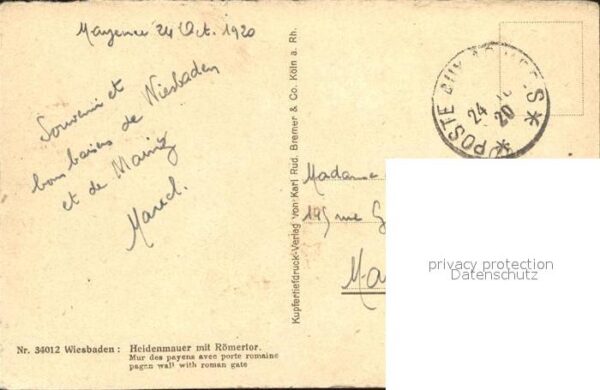 Mayence 24 Oct. 1920
Souvenir et
bons baisers de Wiesbaden
et de Mainz
Marcel.
Nr. 34012 Wiesbaden: Heidenmauer mit Römertor.
Mur des payens avec porte romaine
pagan wall with roman gate
Kupfertiefdruck-Verlag von Karl Rud. Bremer & Co. Köln a. Rh.
* POSTE AUX ARMEES *
24
20
Madame
rue
Ma
privacy protection
Datenschutz